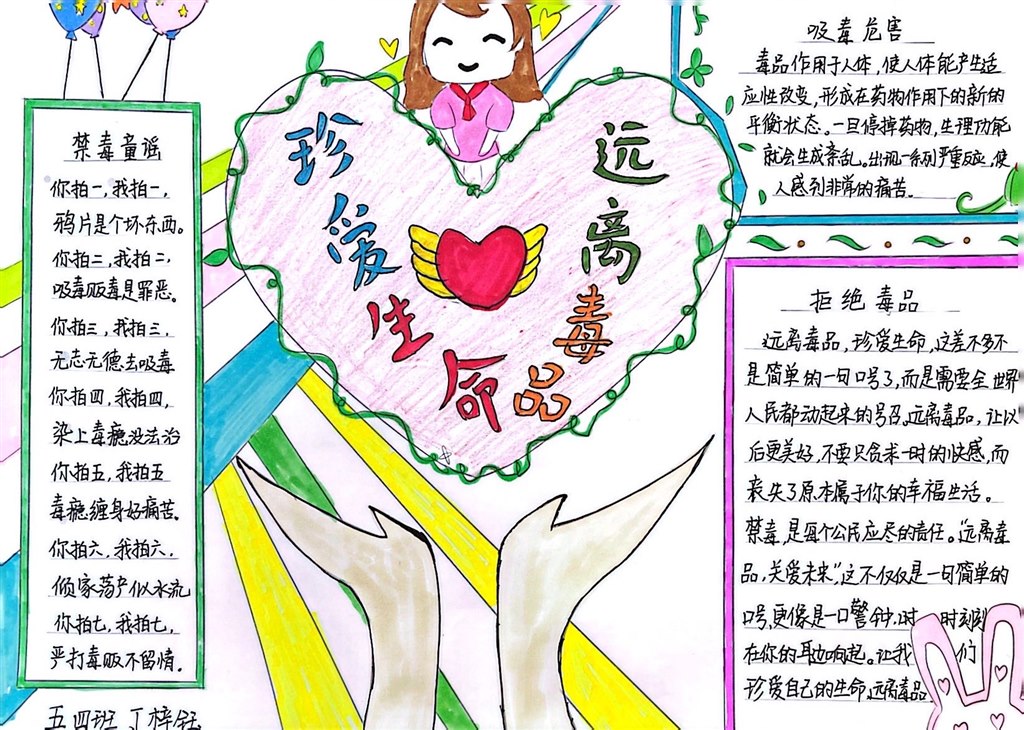 禁毒童谣
你拍一,我拍一,
鸦片是个坏东西。
你拍二,我拍二,
吸毒贩毒是罪恶。
你拍三,我拍三,
无志无德去吸毒
你拍四,我拍四,
染上毒瘾没法治
你拍五,我拍五
毒瘾缠身好痛苦。
你拍六,我拍六,
倾家荡产似水流
你拍七,我拍七,
严打毒贩不留情。
五四班 丁梓钰
珍爱生命
远离毒品
吸毒危害
毒品作用于人体,使人体能产生适
应性改变,形成在药物作用下的新的
平衡状态。一旦停掉药物,生理功能
就会生成紊乱。出现一系列严重反应,使
人感到非常的痛苦。
拒绝毒品
远离毒品,珍爱生命,这差不多不
是简单的一句口号了,而是需要全世界
人民都动起来的号召。远离毒品,让以
后更美好,不要只贪求一时的快感,而
丧失了原本属于你的幸福生活。
禁毒,是每个公民应尽的责任。“远离毒
品,关爱未来”,这不仅仅是一句简单的
口号,更像是一口警钟,时 时刻刻
在你的耳边响起。让我 们
珍爱自己的生命,远离毒品